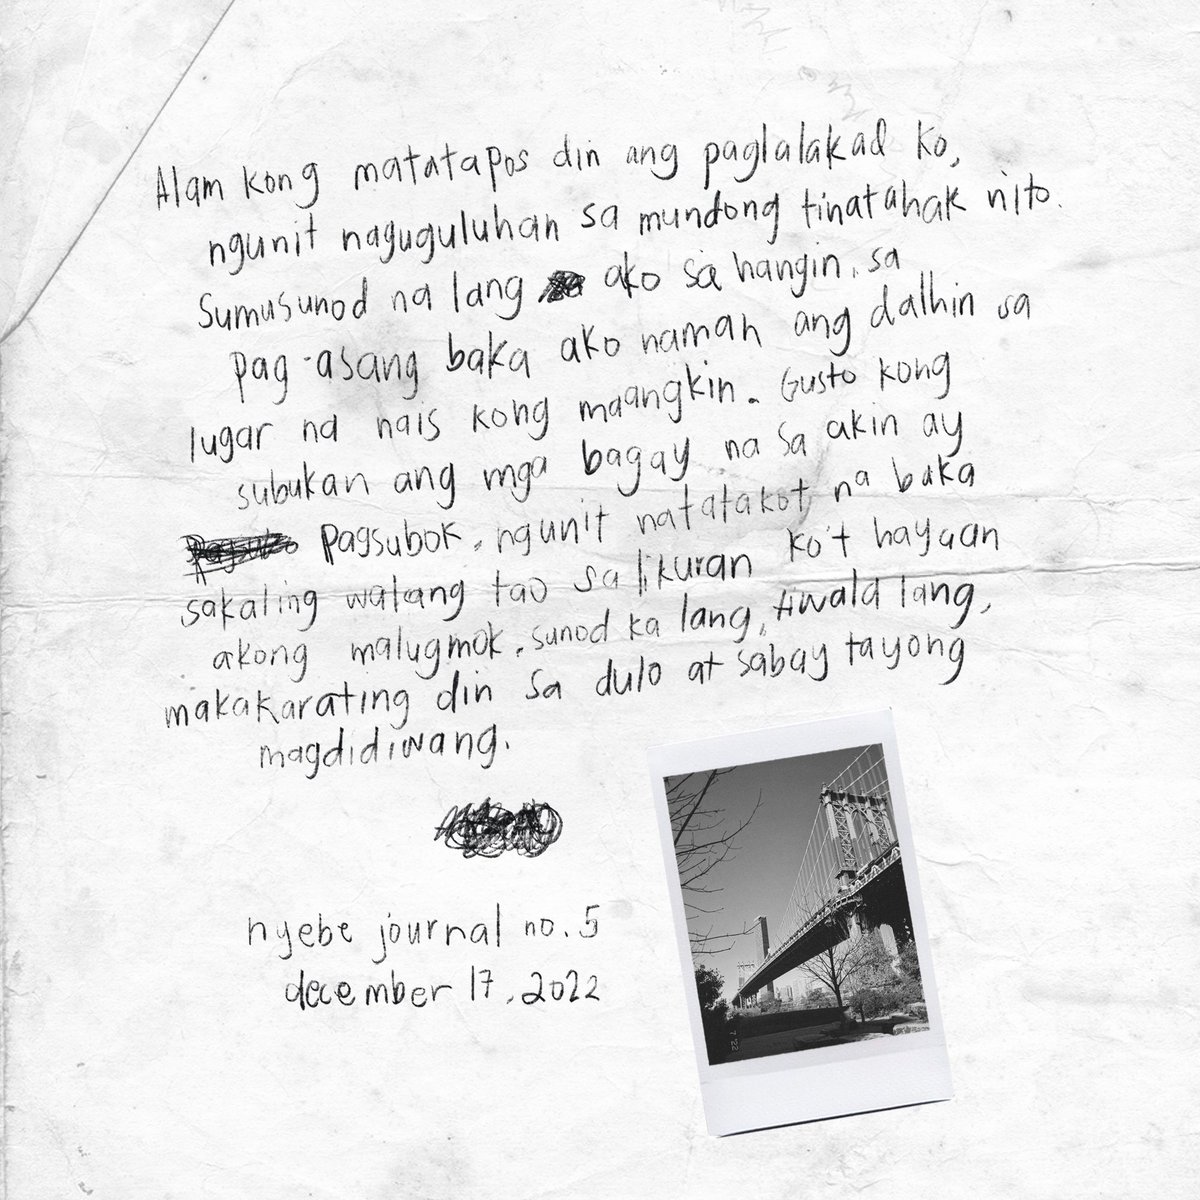 Alam kong matatapos din ang paglalakad ko,
ngunit naguguluhan sa mundong tinatahak nito.
Sumusunod na lang ako sa hangin, sa
pag-asang baka ako naman ang dalhin sa
lugar na nais kong maangkin. Gusto kong
subukan ang mga bagay na sa akin ay
pagsubok, ngunit natatakot na baka
sakaling walang tao sa likuran ko't hayaan
akong malugmok. sunod ka lang, tiwala lang,
makakarating din sa dulo at sabay tayong
magdidiwang.
nyebe journal no. 5
december 17, 2022
7 '22